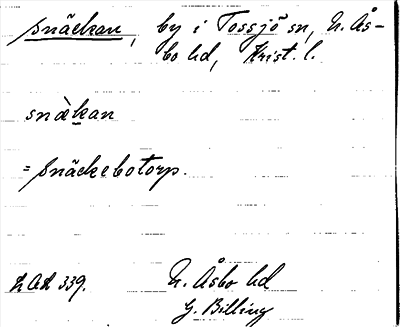 snäckan, by i Tossjö sn, N. Ås-
bo hd, Krist. l.
snὰkan
= snäckebotorp.
LAL 339.
N. Åsbo hd
G. Billing